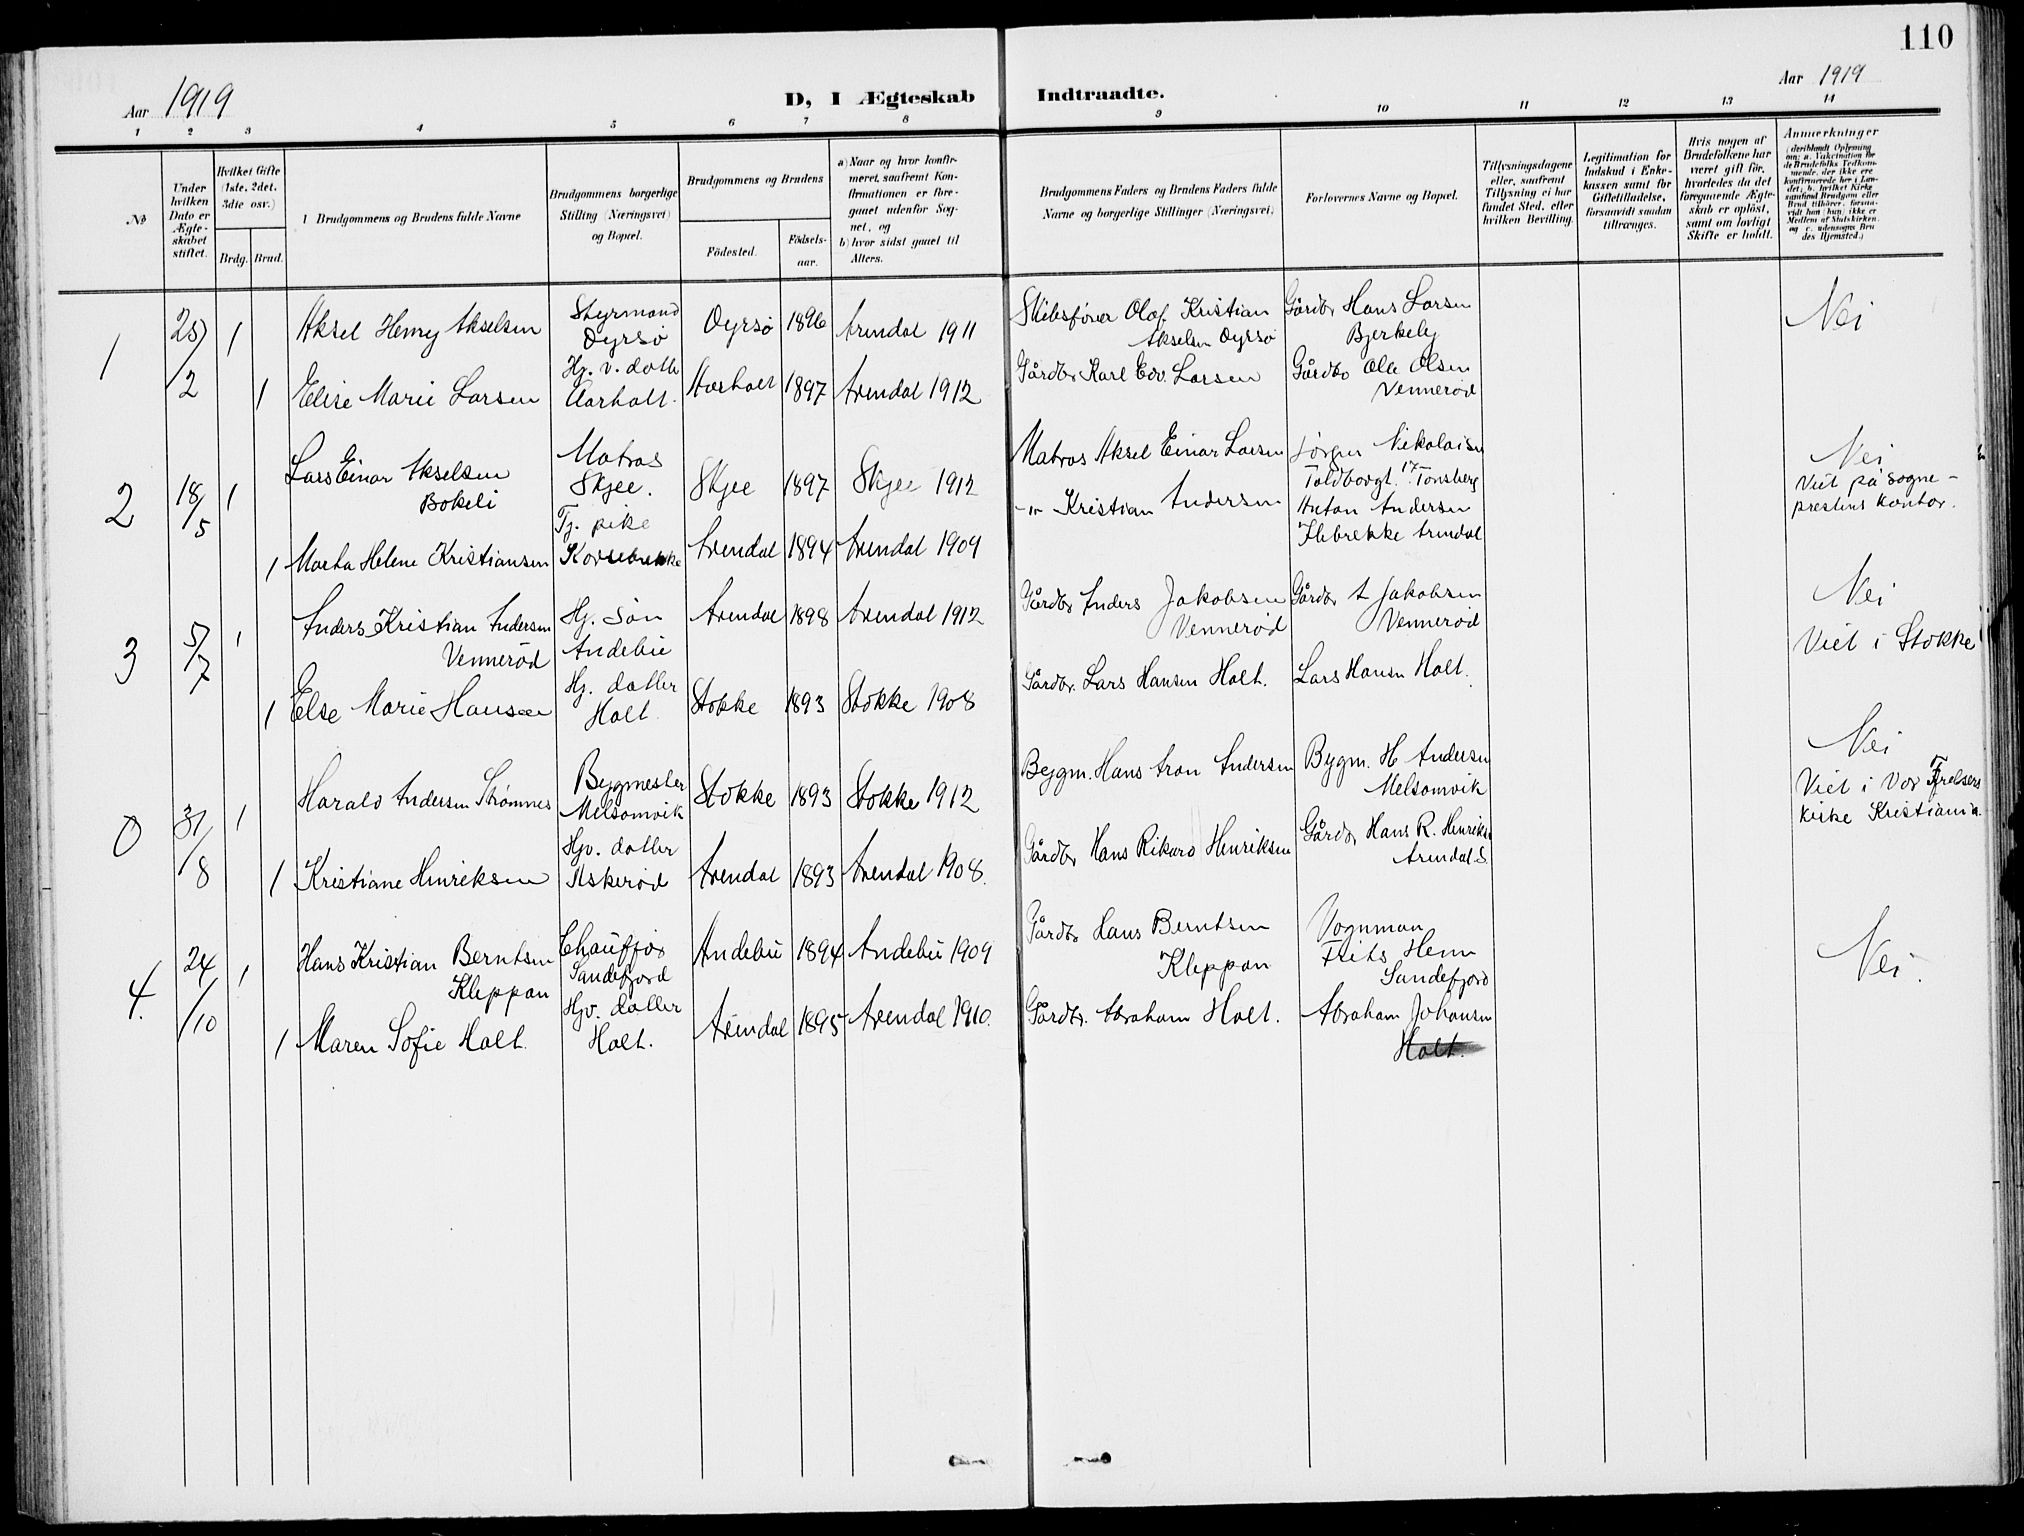 110
Aar 1919
D, I Ægteskab Indtraadte.
Aar 1919
1 2 3 4 5 6 7 8 9 10 11 12 13 14
No
Under hvilken Dato er Ægteskabet stiftet.
Hvilket Gifte (1ste, 2det, 3die osv.)
Brdg. Brud.
1 Brudgommens og Brudens fulde Navne
Brudgommens borgerlige Stilling (Næringsvei) og Bopæl.
Brudgommens og Brudens
Fødested.
Fødselsaar.
a) Naar og hvor konfirmeret, saafremt Konfirmationen er foregaaet udenfor Sognet, og
b) hvor sidst gaaet til Alters.
Brudgommens Faders og Brudens Faders fulde Navne og borgerlige Stillinger (Næringsvei)
Forlovernes Navne og Bopæl.
Tillysningsdagene eller, saafremt Tillysning ei har fundet Sted, efter hvilken Bevilling.
Legitimation for Indskud i Enkekassen samt for Giftetilladelse, forsaavidt saadan tiltrænges.
Hvis nogen af Brudefolkene har været gift før, hvorledes da det foregaaende Ægteskab er opløst, samt om lovligt Skifte er holdt.
Anmerkninger (deriblandt Oplysning om: a. Vakcination for de Brudefolks Vedkommende, der ikke ere konfirmerede her i Landet; b. hvilket Kirkesamfund Brudgom eller Brud tilhører, forsaavidt han (hun) ikke er Medlem af Statskirken, og c. udensogns Brudes Hjemsted.)
1 25/2 1 Aksel Henry Akselsen Styrmand Oyrsø Oyrsø 1896 Arendal 1911 Skibsfører Olaf Kristian Akselsen Oyrsø Gårdbr Hans Larsen Bjerkely Nei
1 Elise Marie Larsen Hj. v. datter Aarholt. Aarholt 1897 Arendal 1912 Gårdbr Karl Edv. Larsen Gårdbr Ole Olsen Vennerød
2 18/5 1 Lars Einar Akselsen Bokeli Matros Skjee. Skjee 1897 Skjee 1912 Matros Aksel Einar Larsen Jørgen Nikolaisen Toldbodgt. 17. Tønsberg Nei Viet på sogneprestens kontor.
1 Marta Helene Kristiansen Tj. pike Arendal 1894 Arendal 1909 -"- Kristian Andersen Anton Andersen Flebrekke Arendal
3 5/7 1 Anders Kristian Andersen Vennerød Hj. søn Andebu Arendal 1898 Arendal 1912 Gårdbr Anders Jakobsen Vennerød Gårdbr A Jakobsen Vennerød Nei Viet i Stokke
1 Else Marie Hansen Hj. datter Holt Stokke 1893 Stokke 1908 Gårdbr. Lars Hansen Holt. Lars Hansen Holt.
0 31/8 1 Harald Andersen Strømnes Bygmester Melsomvik Stokke 1893 Stokke 1912 Bygm. Hans Aron Andersen Bygm. H Andersen Melsomvik Nei Viet i Vor Frelsers kirke Kristiania.
1 Kristiane Henriksen Hjv. datter Askerød Arendal 1893 Arendal 1908. Gårdbr Hans Rikard Henriksen Gårdbr Hans R. Henriksen Arendal S.
4. 24/10 1 Hans Kristian Berntsen Kleppan Chauffør Sandefjord Andebu 1894 Andebu 1909 Gårdbr Hans Berntsen Kleppan Vognman Frits Henn Sandefjord Nei.
1 Maren Sofie Holt. Hjv. datter Holt. Arendal 1895 Arendal 1910. Gårdbr. Abraham Holt. Abraham Johansen Holt.